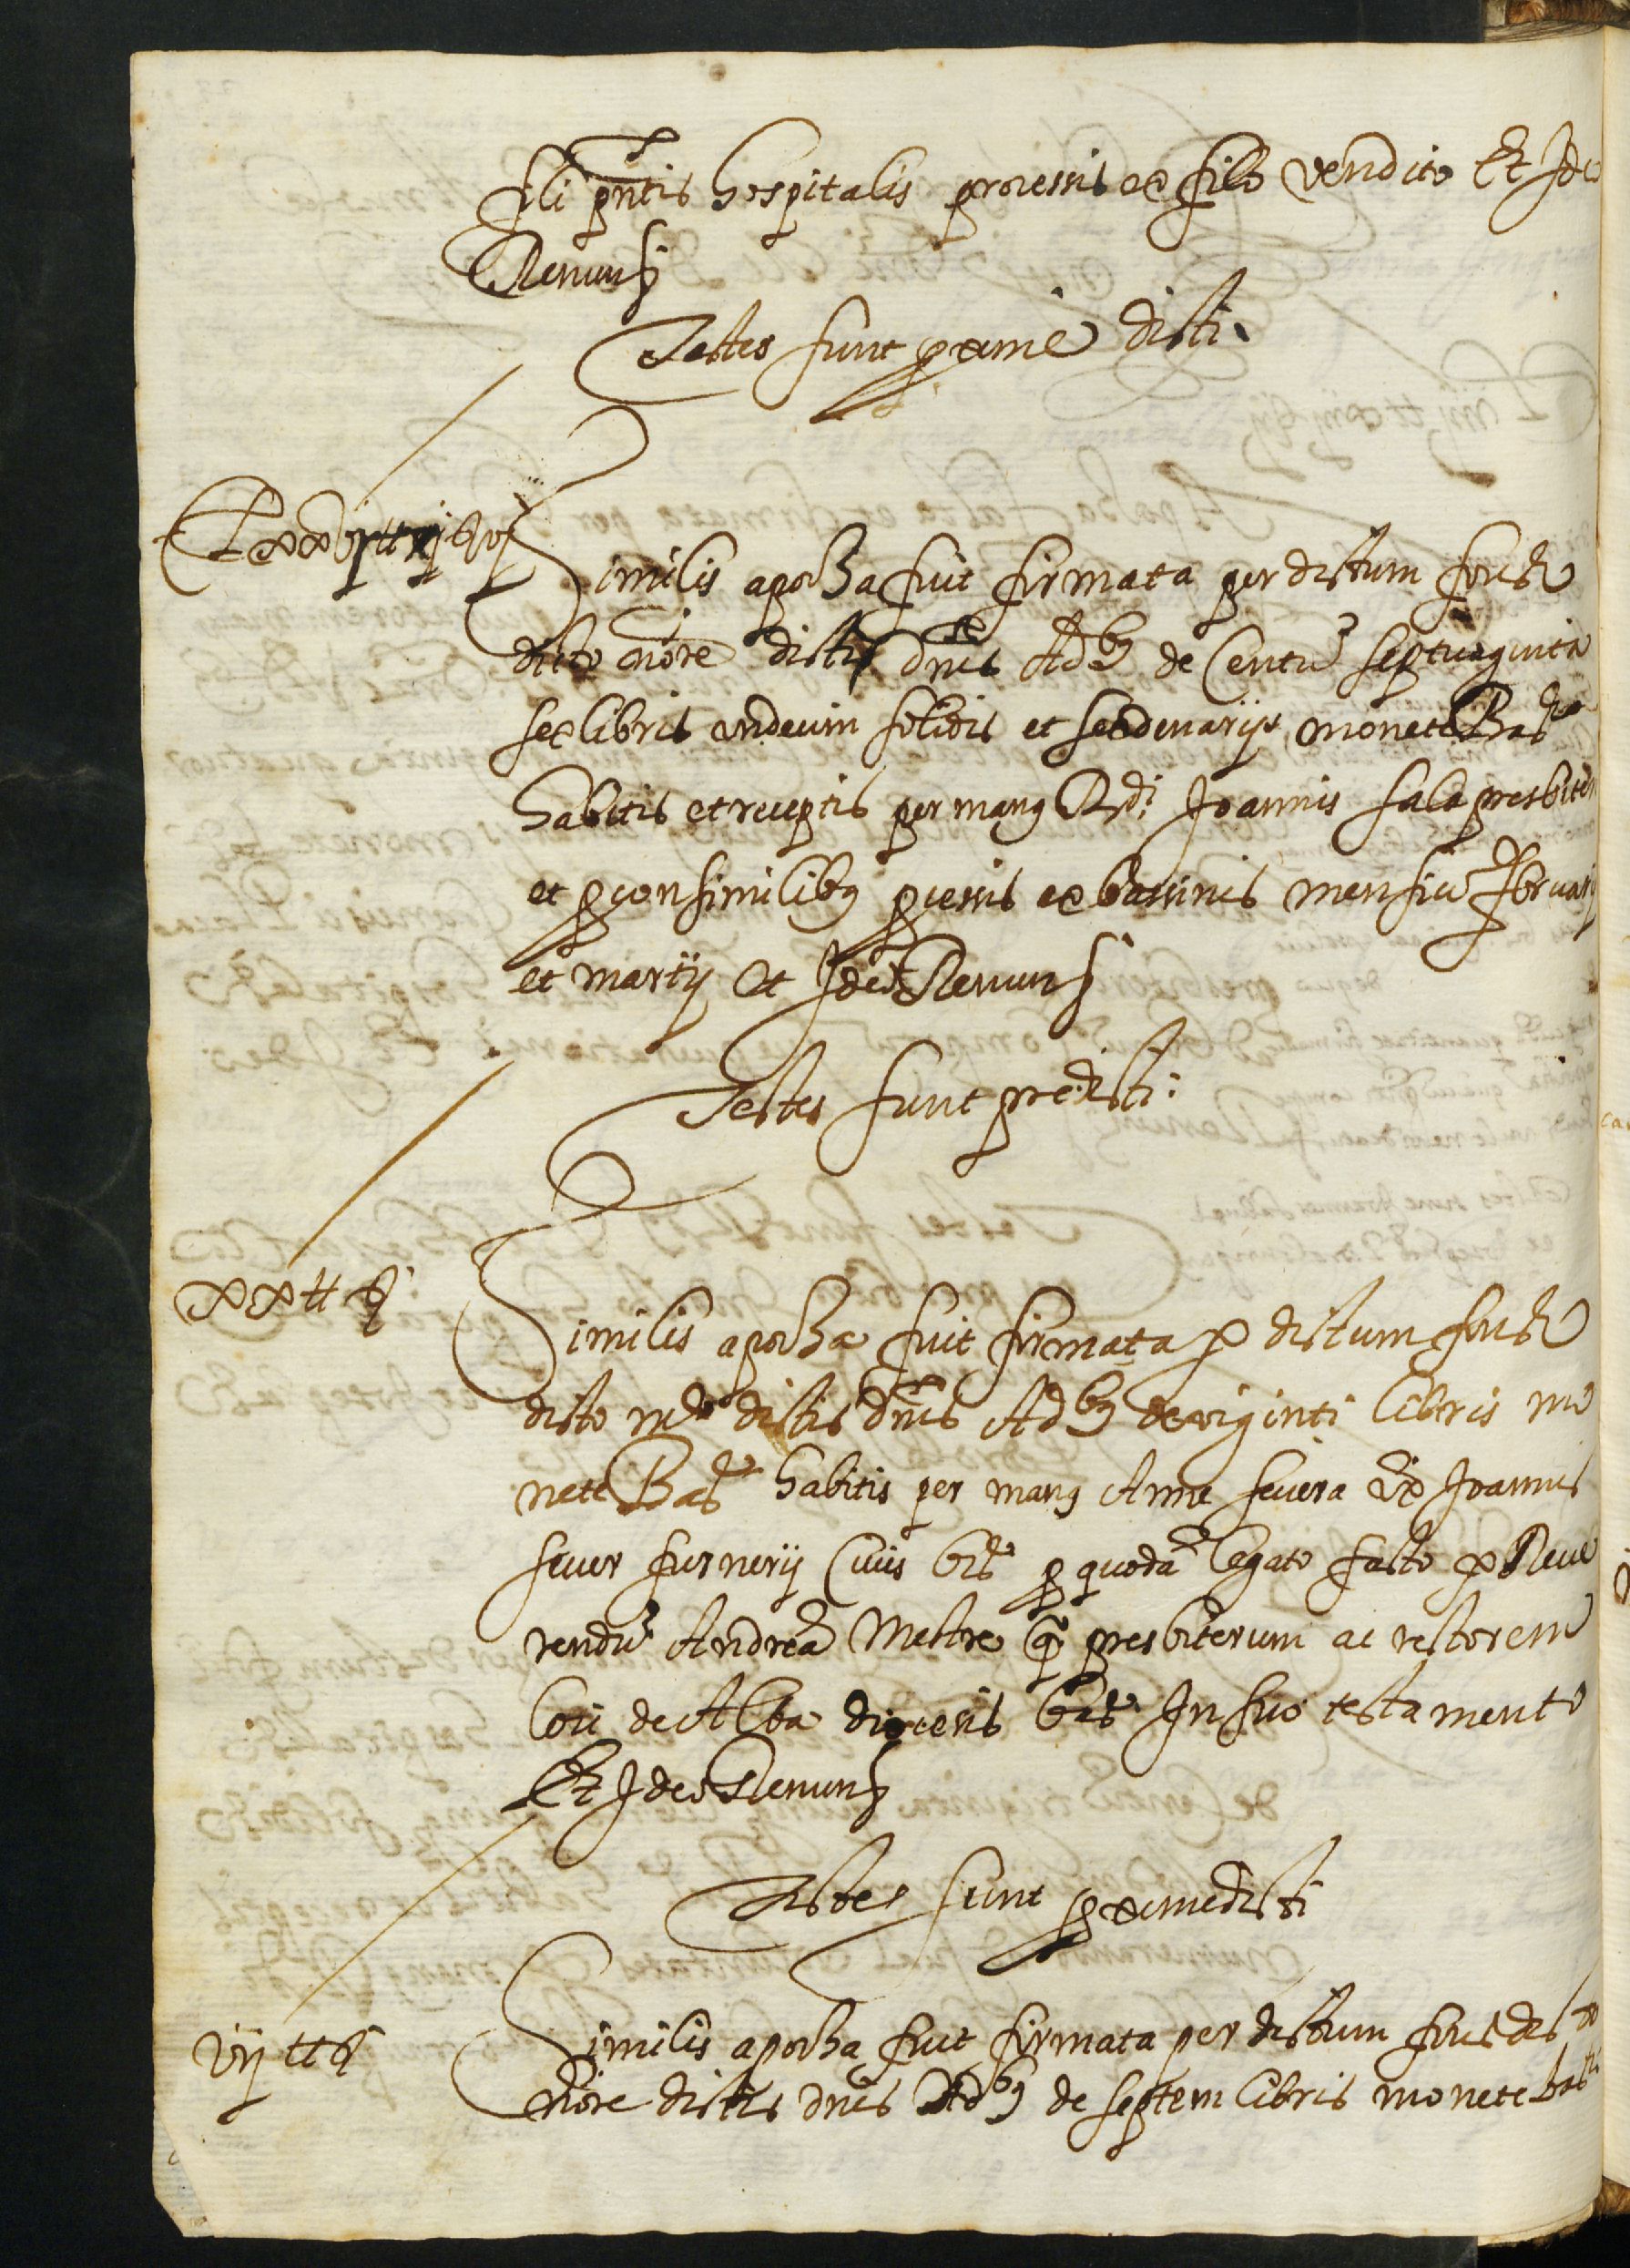 fili pntis hospitalis processis ex filo vendito Et Ideo
Renun
Testes sunt proxime dicti
Similis apocha fuit firmata per dictum font
dicto nore dictis dnis Adbus de Centu septuaginta
sex libris undecim solidis et sex denarijs monete Bar
habitis et receptis per manus Rdi Joannis sala presbiteri
et sunt pro consimilibus processis ex bassinis mensiu februarij
et martij Et Ideo Renun
Testes sunt predicti
xx ll
Similis apocha fuit firmata p dictum font
dicto dictis dnis Adbus de viginti libris mo
nete Bar habitis per manus Anne severa vx Joannis
sever furnerij Civis bar p quoda legato facto p Reve
rendu Andrea Mestre q presbiterum ac rectorem
loci de Alba diocesis bar In suo testamento
Et Ideo Renun
Testes sunt proxime dicti
vij ll
Similis apocha fuit firmata per dictum font dicto
nore dictis dnis Adbus de septem libris monete bar